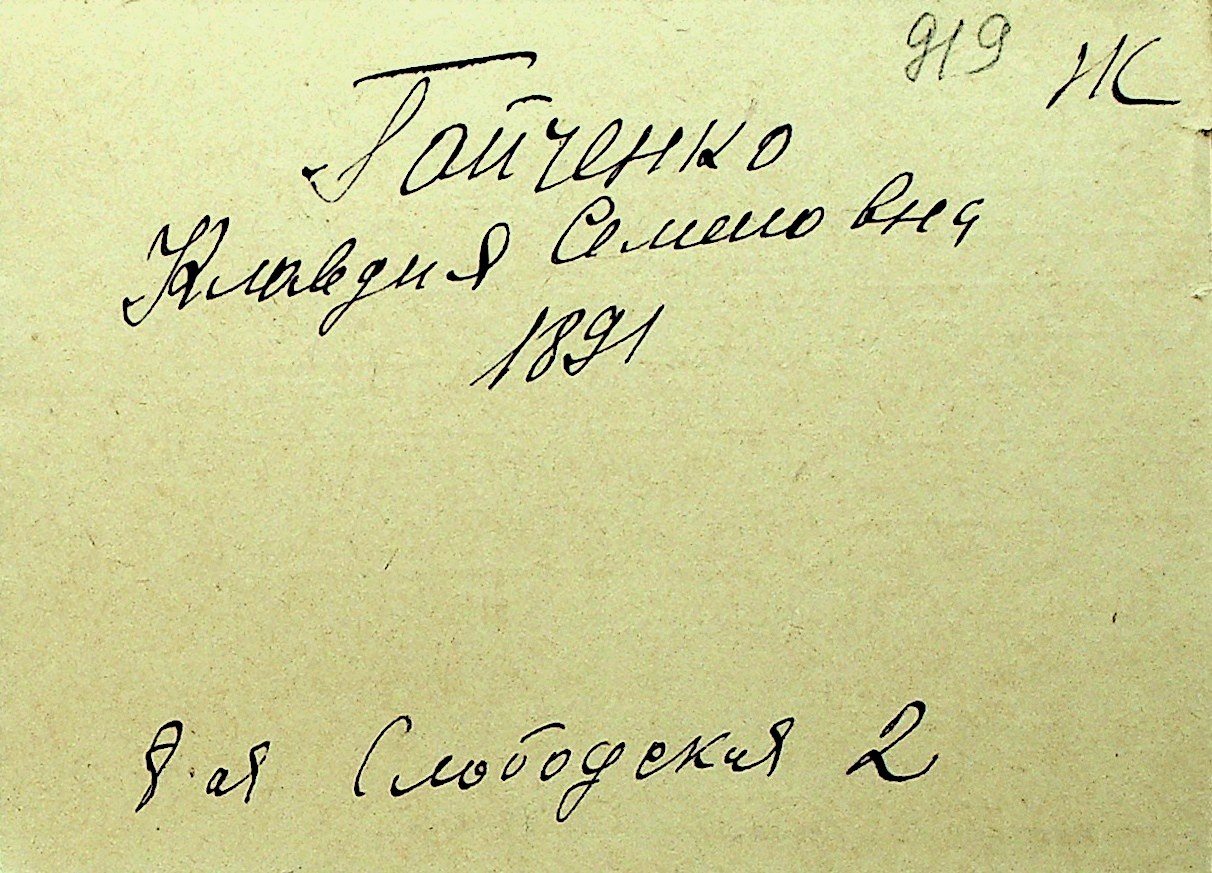 919 Ж
Гайченко
Клавдия Семеновна
1891
8-ая Слободская 2